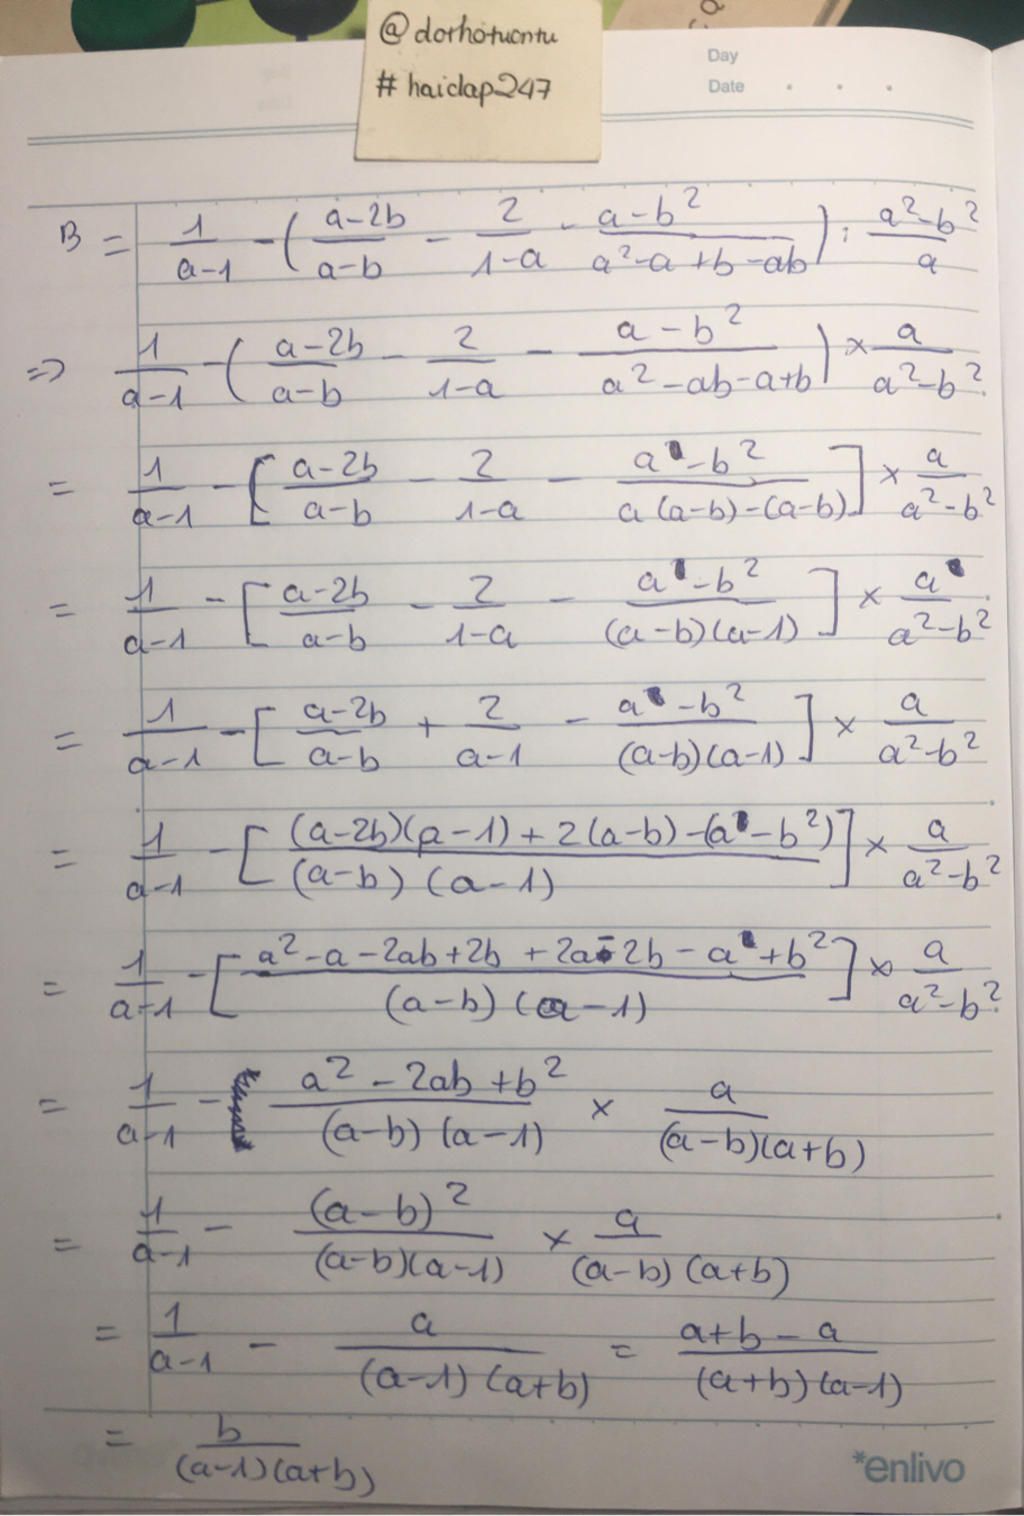 @dorhotuontu
#haiclap247
Day
Date . . .
B = 1/(a-1) - ((a-2b)/(a-b) - 2/(1-a) - (a-b²)/(a²-a+b-ab)) : (a²-b²)/a
=> 1/(a-1) - ((a-2b)/(a-b) - 2/(1-a) - (a-b²)/(a²-ab-a+b)) × a/(a²-b²)
= 1/(a-1) - [(a-2b)/(a-b) - 2/(1-a) - (a-b²)/(a(a-b)-(a-b))] × a/(a²-b²)
= 1/(a-1) - [(a-2b)/(a-b) - 2/(1-a) - (a-b²)/((a-b)(a-1))] × a/(a²-b²)
= 1/(a-1) - [(a-2b)/(a-b) + 2/(a-1) - (a-b²)/((a-b)(a-1))] × a/(a²-b²)
= 1/(a-1) - [((a-2b)(a-1)+2(a-b)-(a-b²))/((a-b)(a-1))] × a/(a²-b²)
= 1/(a-1) - [(a²-a-2ab+2b+2a-2b-a+b²)/((a-b)(a-1))] × a/(a²-b²)
= 1/(a-1) - (a²-2ab+b²)/((a-b)(a-1)) × a/((a-b)(a+b))
= 1/(a-1) - (a-b)²/((a-b)(a-1)) × a/((a-b)(a+b))
= 1/(a-1) - a/((a-1)(a+b)) = (a+b-a)/((a+b)(a-1))
= b/((a-1)(a+b))
*enlivo